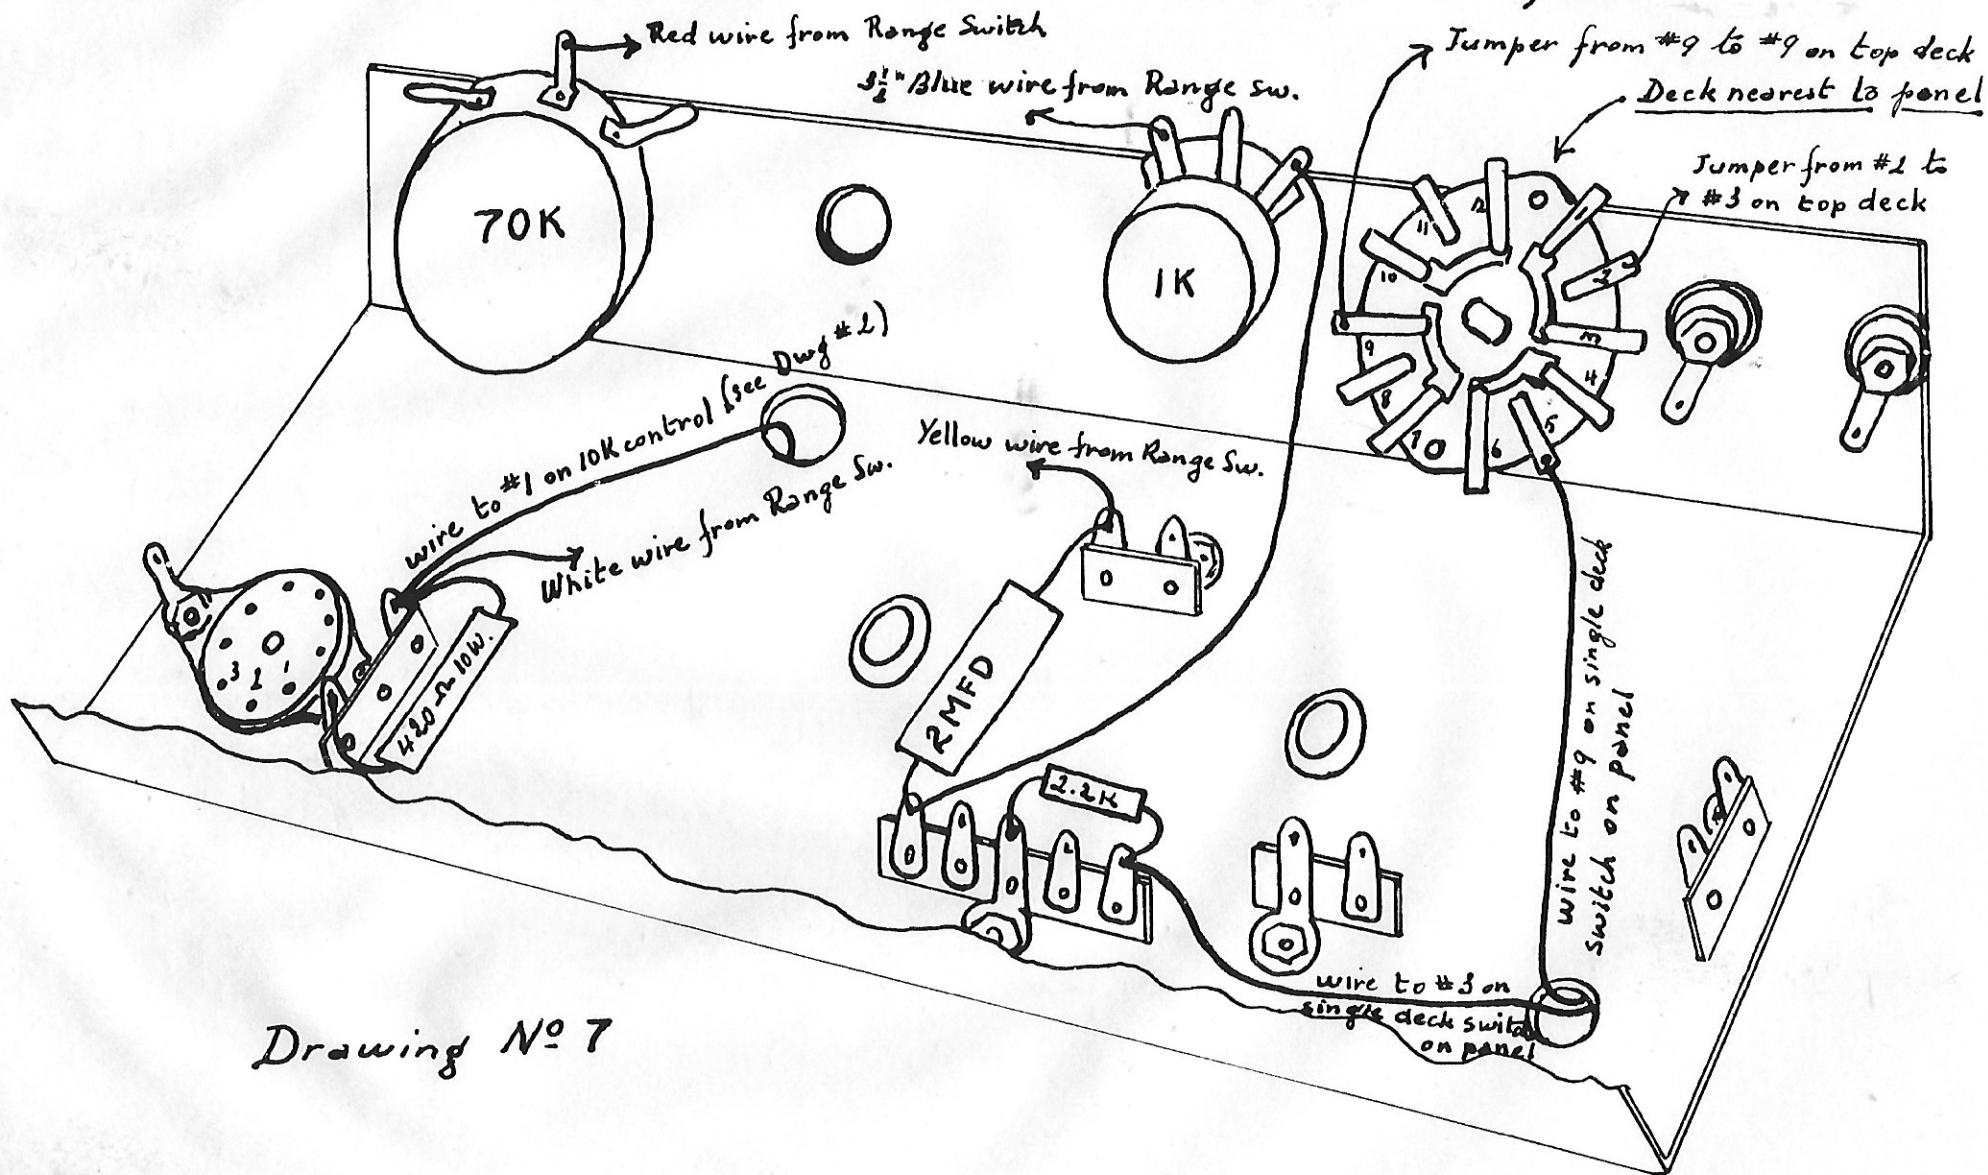 Red wire from Range Switch
3½" Blue wire from Range sw.
Jumper from #9 to #9 on top deck
Deck nearest to panel
Jumper from #2 to
#3 on top deck
70K
1K
12
11
10
9
8
7
6
5
4
3
2
1
wire to #1 on 10K control (see Dwg #2)
White wire from Range Sw.
Yellow wire from Range Sw.
3 2 1
420Ω 10W.
2MFD
2.2K
wire to #9 on single deck
switch on panel
wire to #3 on
single deck switch
on panel
Drawing Nº 7